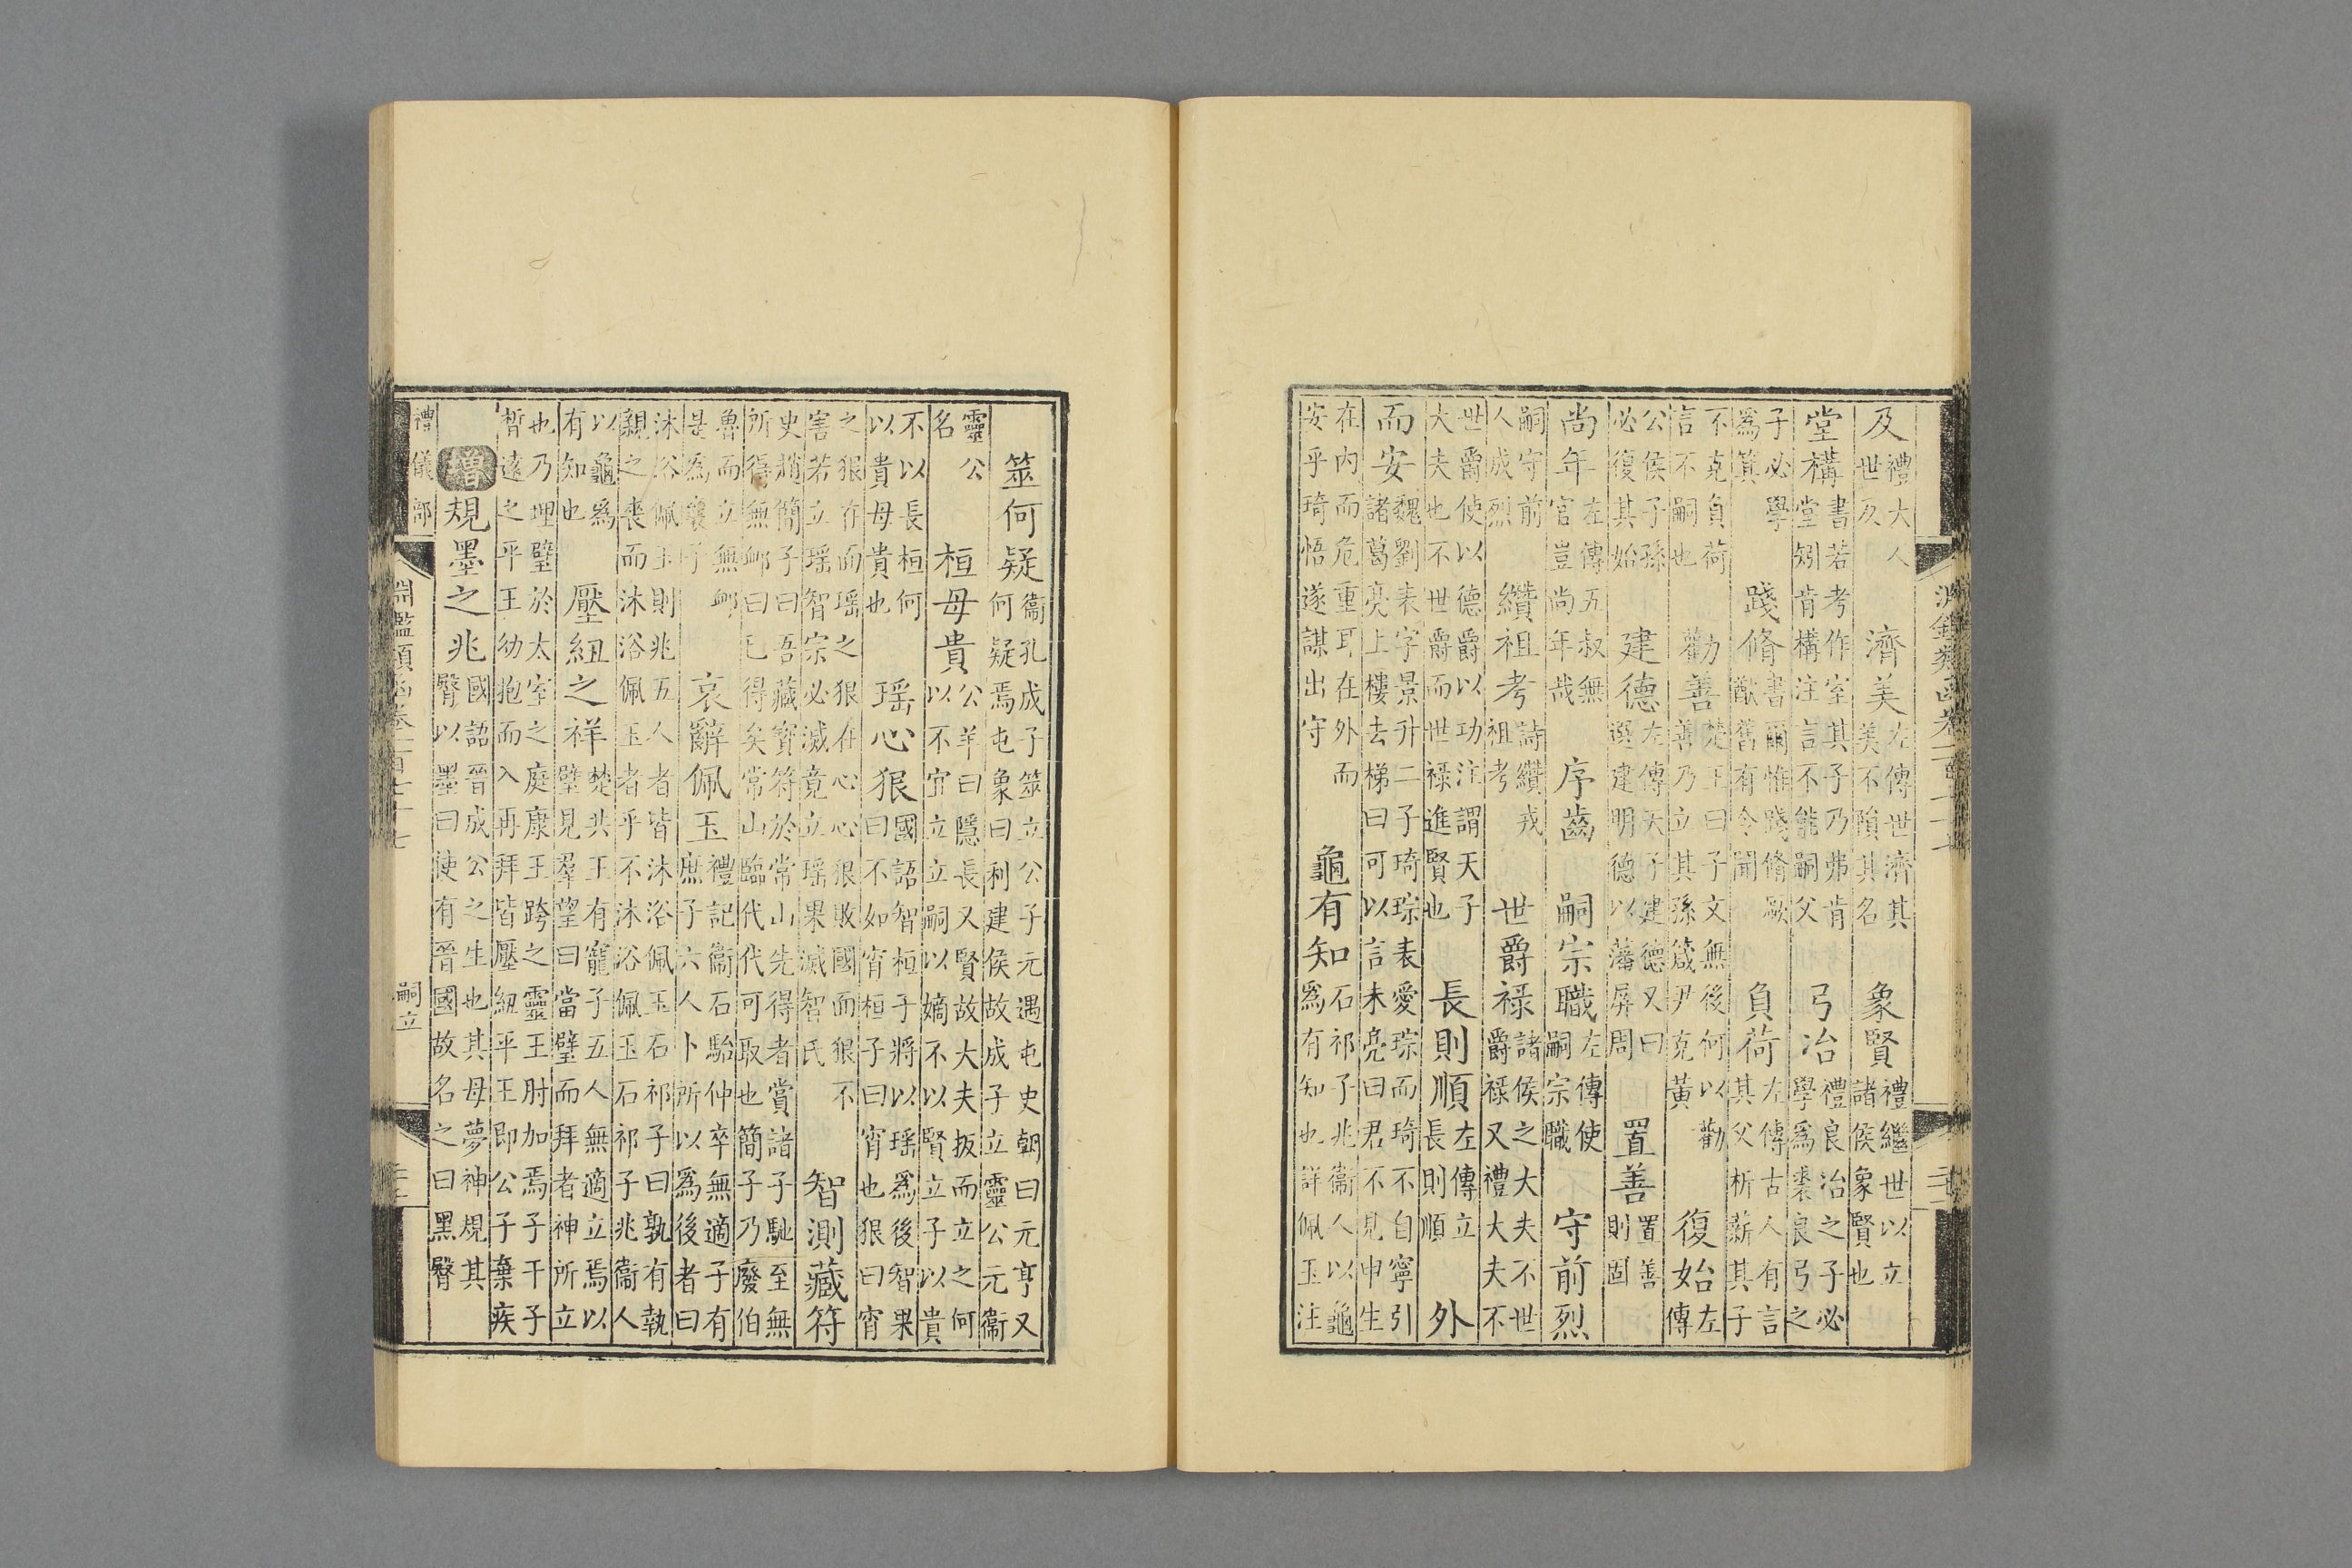 淵鑑類函卷二百七十七
及禮大人世及　濟美左傳世濟其美不隕其名　象賢禮繼世以立諸侯象賢也
堂構書若考作室其子乃弗肯堂矧肯構注言不能嗣父　弓冶禮良冶之子必學爲裘良弓之
子必學爲箕　踐脩書爾惟踐脩厥猷舊有令聞　負荷左傳古人有言其父析薪其子
不克負荷言不嗣也　勸善楚王曰子文無後何以勸善乃立其孫箴尹克黃　復始左傳
公侯子孫必復其始　建德左傳天子建德又曰選建明德以藩屏周　置善置善則固
尚年左傳五叔無官豈尚年哉　序齒　嗣宗職左傳使嗣宗職　守前烈
嗣守前人成烈　纘祖考詩纘戎祖考　世爵祿諸侯之大夫不世爵祿又禮大夫不
世爵使以德爵以功注謂天子大夫也不世爵而世祿進賢也　長則順左傳立長則順　外
而安魏劉表字景升二子琦琮表愛琮而琦不自寧引諸葛亮上樓去梯曰可以言未亮曰君不見申生
在內而危重耳在外而安乎琦悟遂謀出守　龜有知石祁子兆衞人以龜爲有知也詳佩玉注
筮何疑衞孔成子筮立公子元遇屯史朝曰元亨又何疑焉屯象曰利建侯故成子立靈公元衞
靈公名　桓母貴公羊曰隱長又賢故大夫扳而立之何以不宜立立嗣以嫡不以賢立子以貴
不以長桓何以貴母貴也　瑶心狠國語智桓子將以瑶爲後智果曰不如宵桓子曰宵也狠曰宵
之狠在面瑶之狠在心心狠敗國面狠不害若立瑶智宗必滅竟立瑶果滅智氏　智測藏符
史趙簡子曰吾藏寶符於常山先得者賞諸子馳至無所得無卹曰已得矣常山臨代代可取也簡子乃廢伯
魯而立無卹是爲襄子　哀辭佩玉禮記衞石駘仲卒無適子有庶子六人卜所以爲後者曰
沐浴佩玉則兆五人者皆沐浴佩玉石祁子曰孰有執親之喪而沐浴佩玉者乎不沐浴佩玉石祁子兆衞人
以龜爲有知也　壓紐之祥楚共王有寵子五人無適立焉以璧見羣望曰當璧而拜者神所立
也乃埋璧於太室之庭康王跨之靈王肘加焉子干子晳遠之平王幼抱而入再拜皆壓紐平王即公子棄疾
增規墨之兆國語晉成公之生也其母夢神規其臀以墨曰使有晉國故名之曰黑臀
禮儀部　淵鑑類函卷二百七十七　嗣立